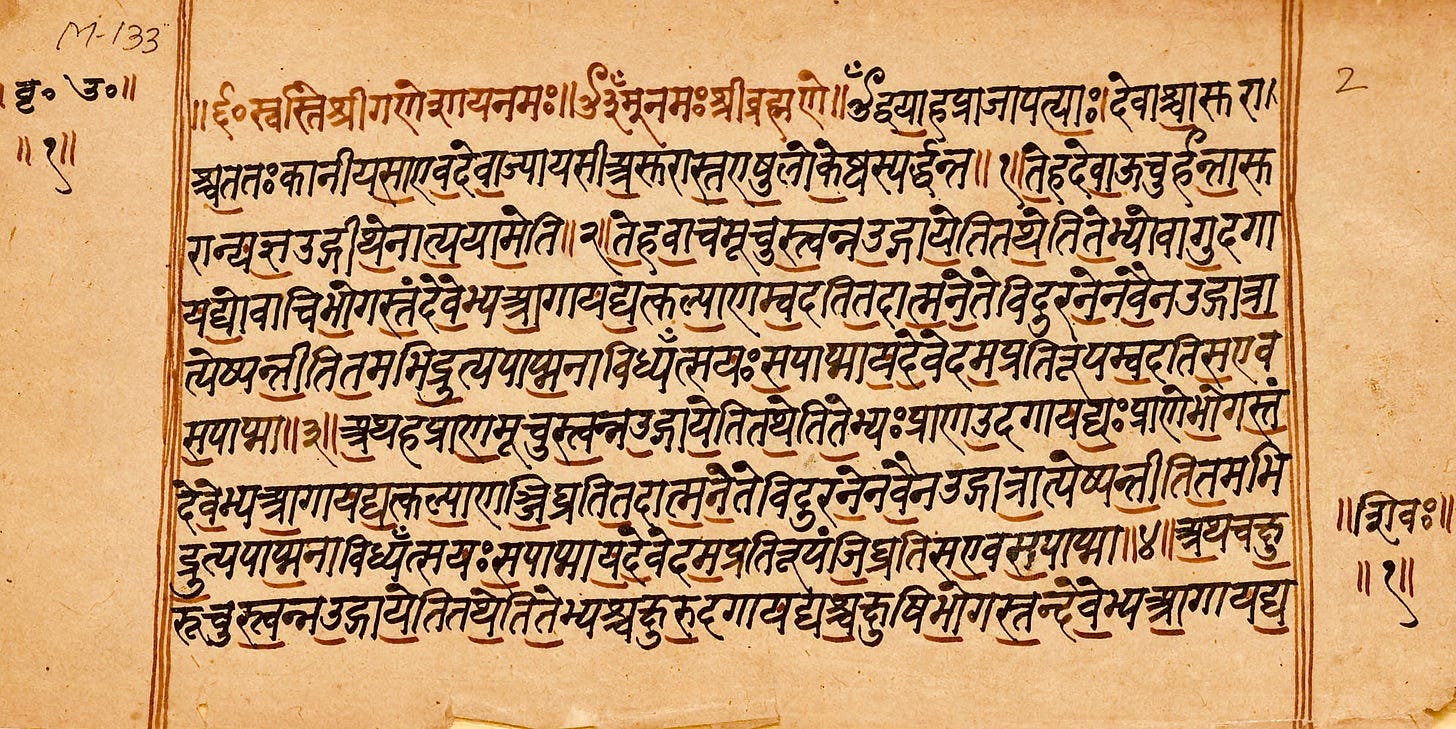 M-133
बृ॰ उ॰॥
॥१॥
2
॥ई॰स्वस्ति श्रीगणेशायनमः॥ॐनमःश्रीब्रह्मणे॥ॐद्वयाहप्राजापत्याः।देवाश्चासुरा।
श्चततःकानीयसाएवदेवाज्यायसाअसुरास्तएषुलोकेष्वस्पर्द्धन्त॥१॥तेहदेवाऊचुर्हन्तासु
रान्यज्ञउद्गीथेनात्ययामेति॥२॥तेहवाचमूचुस्त्वन्नउद्गायेतितथेतितेभ्योवागुदगा
यद्योवाचिभोगस्तंदेवेभ्यआगायद्यत्कल्याणम्वदतितदात्मनेतेविदुरनेनवैनउद्गात्रा
त्येष्यन्तीतितमभिद्रुत्यपाप्मनाविध्यँत्सयःसपाप्मायदेवेदमप्रतिरूपम्वदतिसएव
सपाप्मा॥३॥अथहप्राणमूचुस्त्वन्नउद्गायेतितथेतितेभ्यःप्राणउदगायद्यःप्राणेभोगस्तं
देवेभ्यआगायद्यत्कल्याणञ्जिघ्रतितदात्मनेतेविदुरनेनवैनउद्गात्रात्येष्यन्तीतितमभि
द्रुत्यपाप्मनाविध्यँत्सयःसपाप्मायदेवेदमप्रतिरूपंजिघ्रतिसएवसपाप्मा॥४॥अथचक्षु
रूचुस्त्वन्नउद्गायेतितथेतितेभ्यश्चक्षुरुदगायद्यश्चक्षुषिभोगस्तन्देवेभ्यआगायद्य
॥शिवः॥
॥१॥